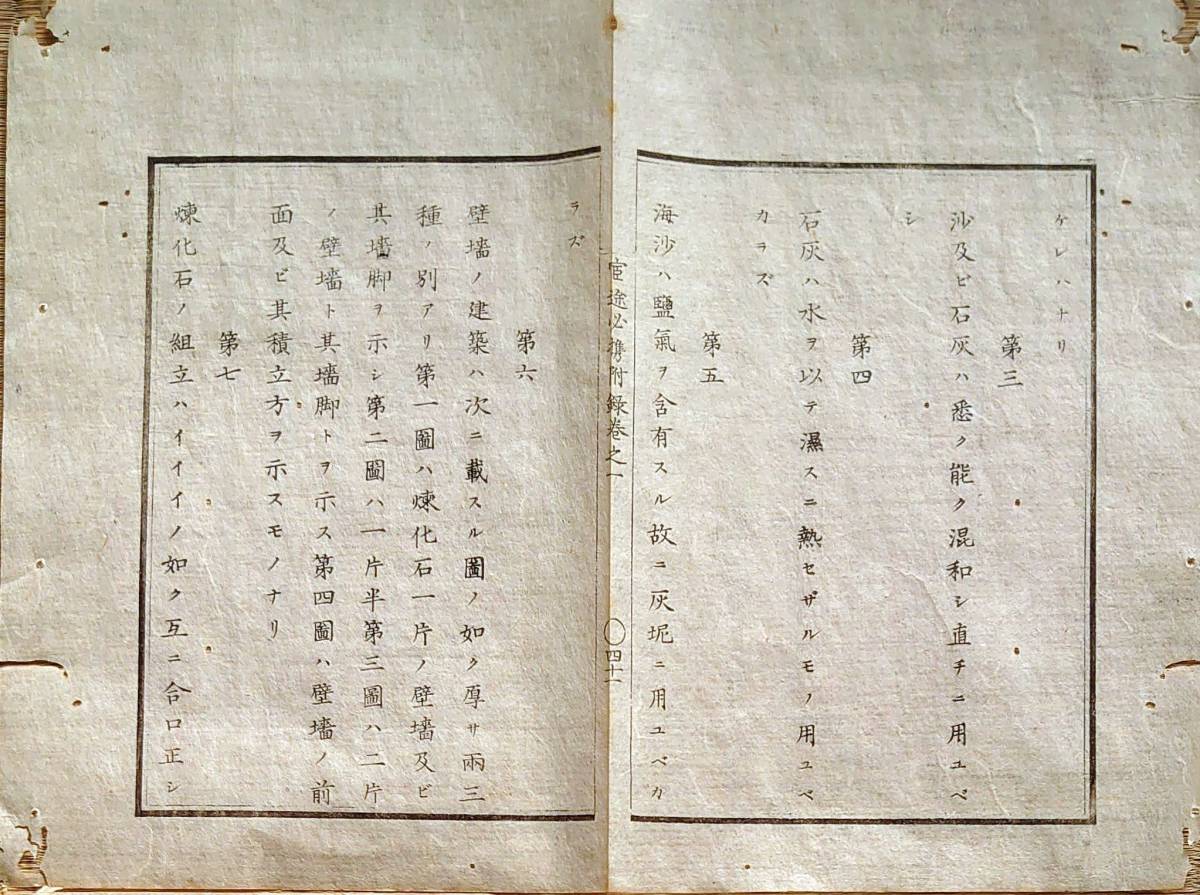 ケレハナリ
第三
沙及ビ石灰ハ悉ク能ク混和シ直チニ用ユベ
シ
第四
石灰ハ水ヲ以テ濕スニ熱セザルモノ用ユベ
カラズ
第五
海沙ハ鹽氣ヲ含有スル故ニ灰坭ニ用ユベカ
宦途必携附錄卷之一
四十一
ラズ
第六
壁墻ノ建築ハ次ニ載スル圖ノ如ク厚サ兩三
種ノ別アリ第一圖ハ煉化石一片ノ壁墻及ビ
其墻脚ヲ示シ第二圖ハ一片半第三圖ハ二片
ノ壁墻ト其墻脚トヲ示ス第四圖ハ壁墻ノ前
面及ビ其積立方ヲ示スモノナリ
第七
煉化石ノ組立ハイイイノ如ク互ニ合口正シ